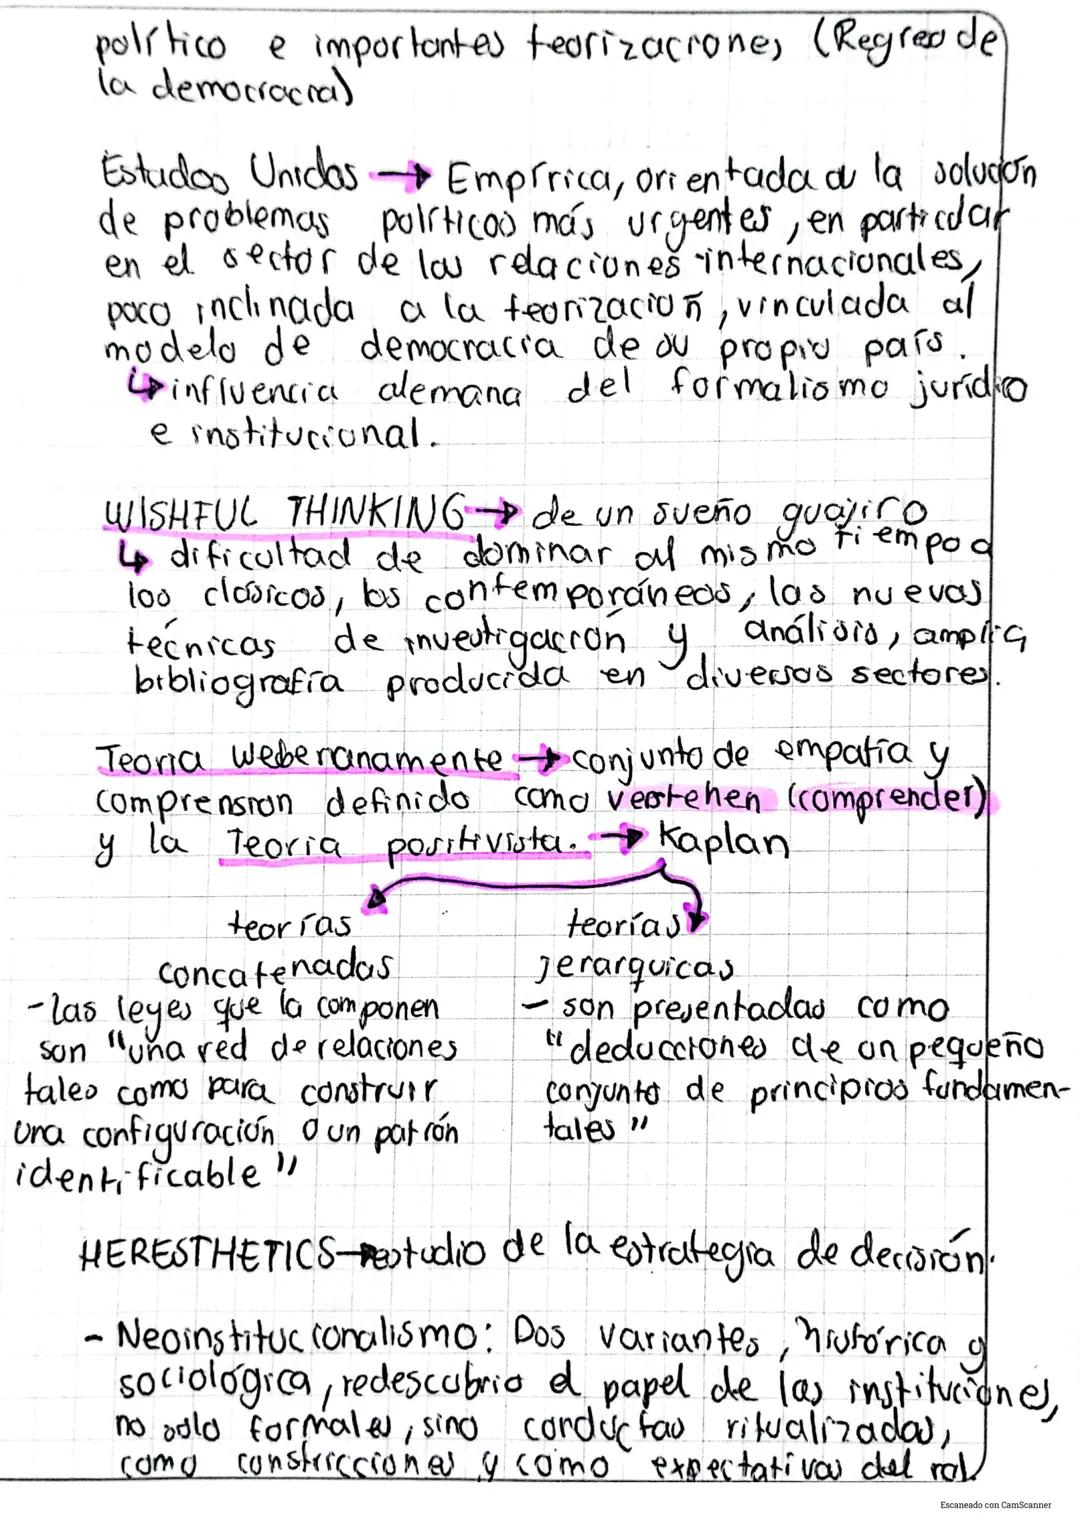 político e importantes teorizaciones (Regreso de
la democracia)
Estados Unidos → Empírica, orientada a la solución
de problemas políticos más urgentes, en particular
en el sector de las relaciones internacionales,
poco inclinada a la teorización, vinculada al
modelo de democracia de su propio país.
↳ influencia alemana del formalismo jurídico
e institucional.
WISHFUL THINKING → de un sueño guajiro
↳ dificultad de dominar al mismo tiempo a
los clásicos, los contemporáneos, las nuevas
técnicas de investigación y análisis, amplia
bibliografía producida en diversos sectores.
Teoría weberianamente → conjunto de empatía y
comprensión definido como verstehen (comprender)
y la Teoría positivista. → Kaplan
teorías concatenadas
- las leyes que la componen
son "una red de relaciones
tales como para construir
una configuración o un patrón
identificable"
teorías jerarquicas
- son presentadas como
"deducciones de un pequeño
conjunto de principios fundamen-
tales"
HERESTHETICS → estudio de la estrategia de decisión.
- Neoinstitucionalismo: Dos variantes, histórica y
sociológica, redescubrio el papel de las instituciones,
no solo formales, sino conductas ritualizadas,
como constricciones y como expectativas del rol
Escaneado con CamScanner